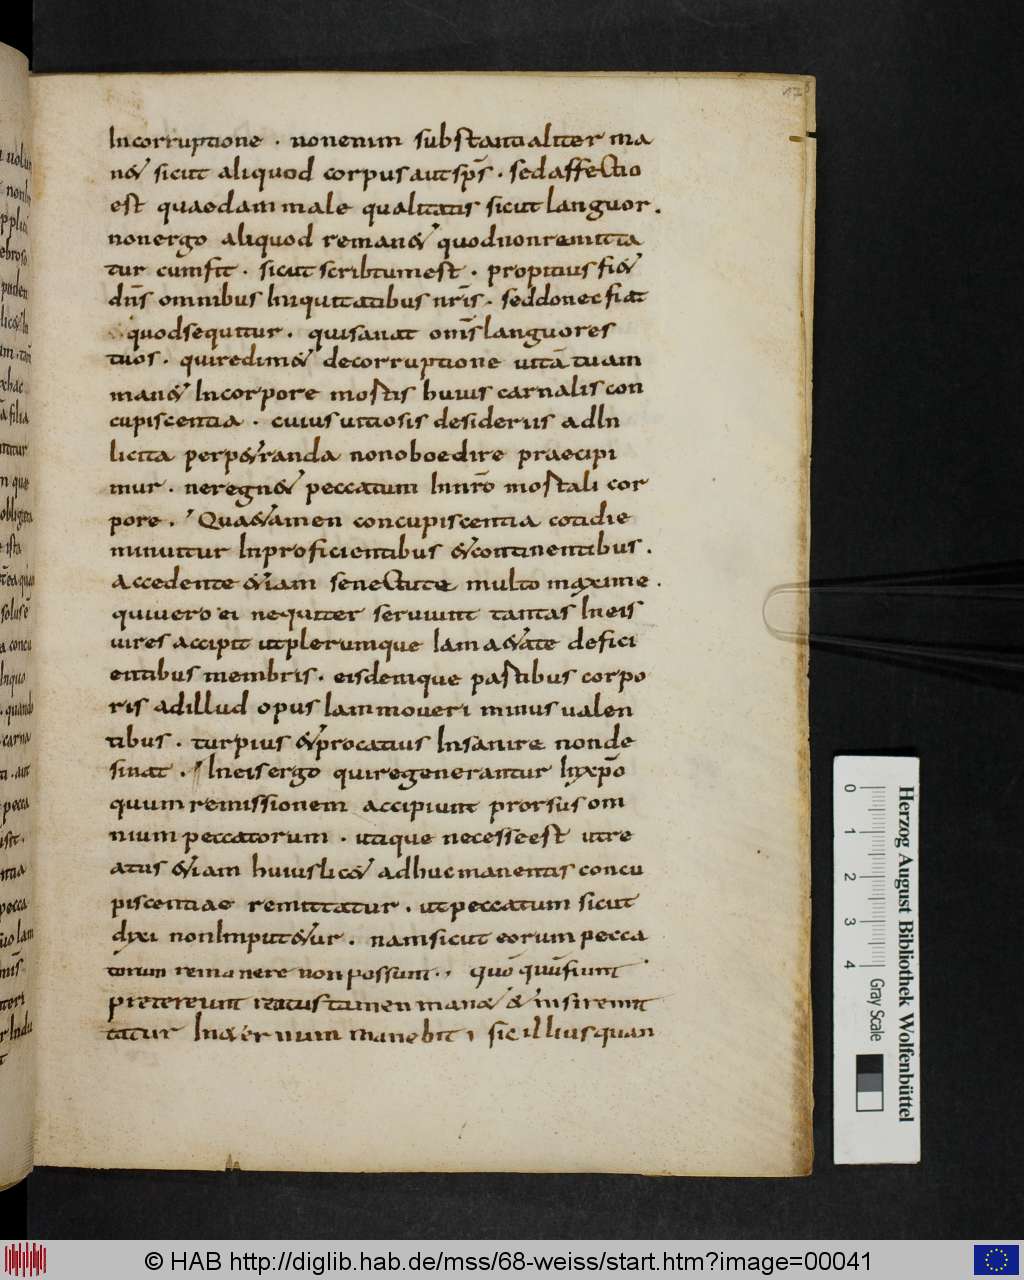 Incorruptione · nonenim substantialiter ma
n& sicut aliquod corpus aut sp̄s · sed affectio
est quaedam male qualitatis sicut languor.
non ergo aliquod reman& quod non remitta
tur cum fit · sicut scribtum est · propitius fi&
dn̄s omnibus Iniquitatibus nr̄is · sed donec fiat
quod sequitur · qui sanat om̄s languores
tuos · qui redim& decorruptione uitā tuam
man& In corpore mortis huius carnalis con
cupiscentia · cuius uitiosis desideriis ad In
licita perp&randa non oboedire praecipi
mur · ne regn& peccatum In nr̄o mortali cor
pore · Qua&amen concupiscentia cotidie
minuitur In proficientibus & continentibus.
Accedente &iam senectute multo maxime.
qui uero ei nequiter seruiunt tantas In eis
uires accipit ut plerumque Iam a&ate defici
entibus membris · eisdemque partibus corpo
ris ad illud opus Iam moueri minus ualen
tibus · turpius & procatius Insanire non de
sinat · In eis ergo qui regenerantur In xp̄o
quum remissionem accipiunt prorsus om
nium peccatorum · utique necesse est ut re
atus &iam huius lic& adhuc manentis concu
piscentiae remittatur · ut peccatum sicut
dixi non Imput&ur · nam sicut eorum pecca
torum remanere non possunt · quō quūfiunt
pretereunt reatus tamen man& & nisi remit
tatur In&ernum manebit · sic illius quan
0 1 2 3 4
Gray Scale
Herzog August Bibliothek Wolfenbüttel
© HAB http://diglib.hab.de/mss/68-weiss/start.htm?image=00041